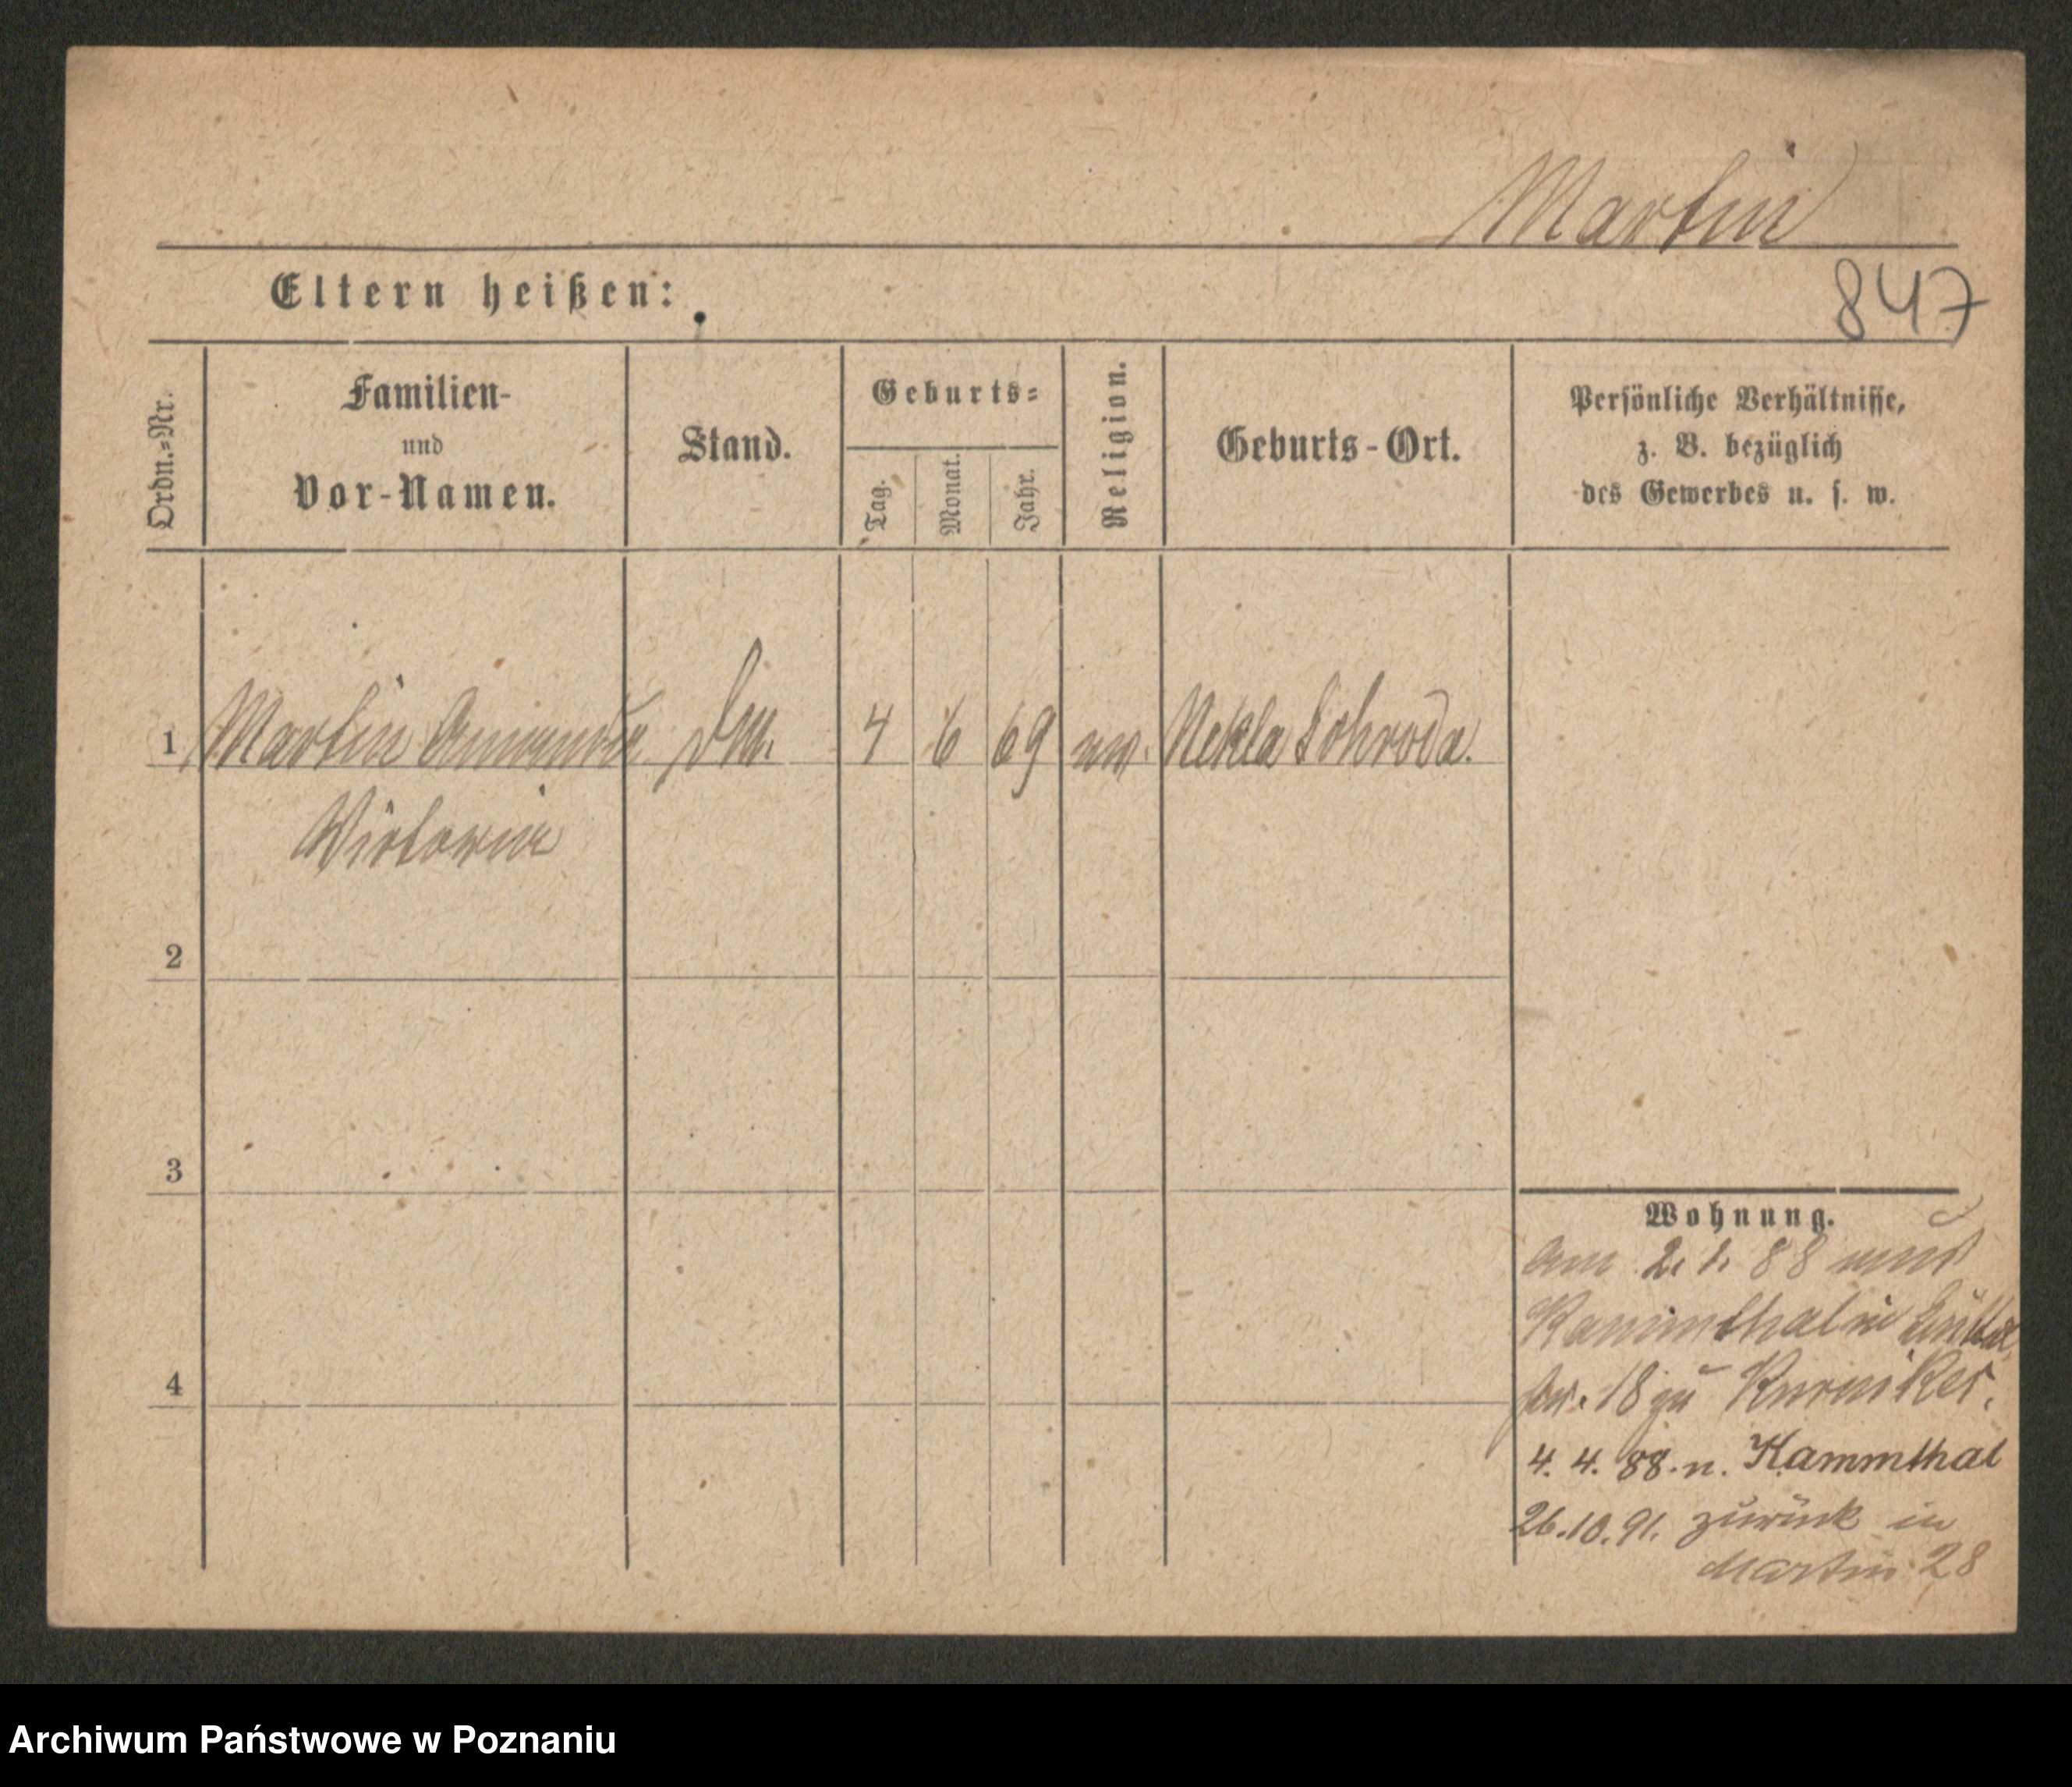 Martin
Eltern heißen:
847
Ordn.-Nr.
Familien-
und
Vor-Namen.
Stand.
Geburts-
Tag.
Monat.
Jahr.
Religion.
Geburts-Ort.
Persönliche Verhältnisse,
z. B. bezüglich
des Gewerbes u. s. w.
1 Martin 4 6 69 Nekla Schroda.
2
3
4
Wohnung.
am 2. 1. 88
18 zu
4. 4. 88. n. Kammthal
26.10.91. zurück in
Martin 28
Archiwum Państwowe w Poznaniu